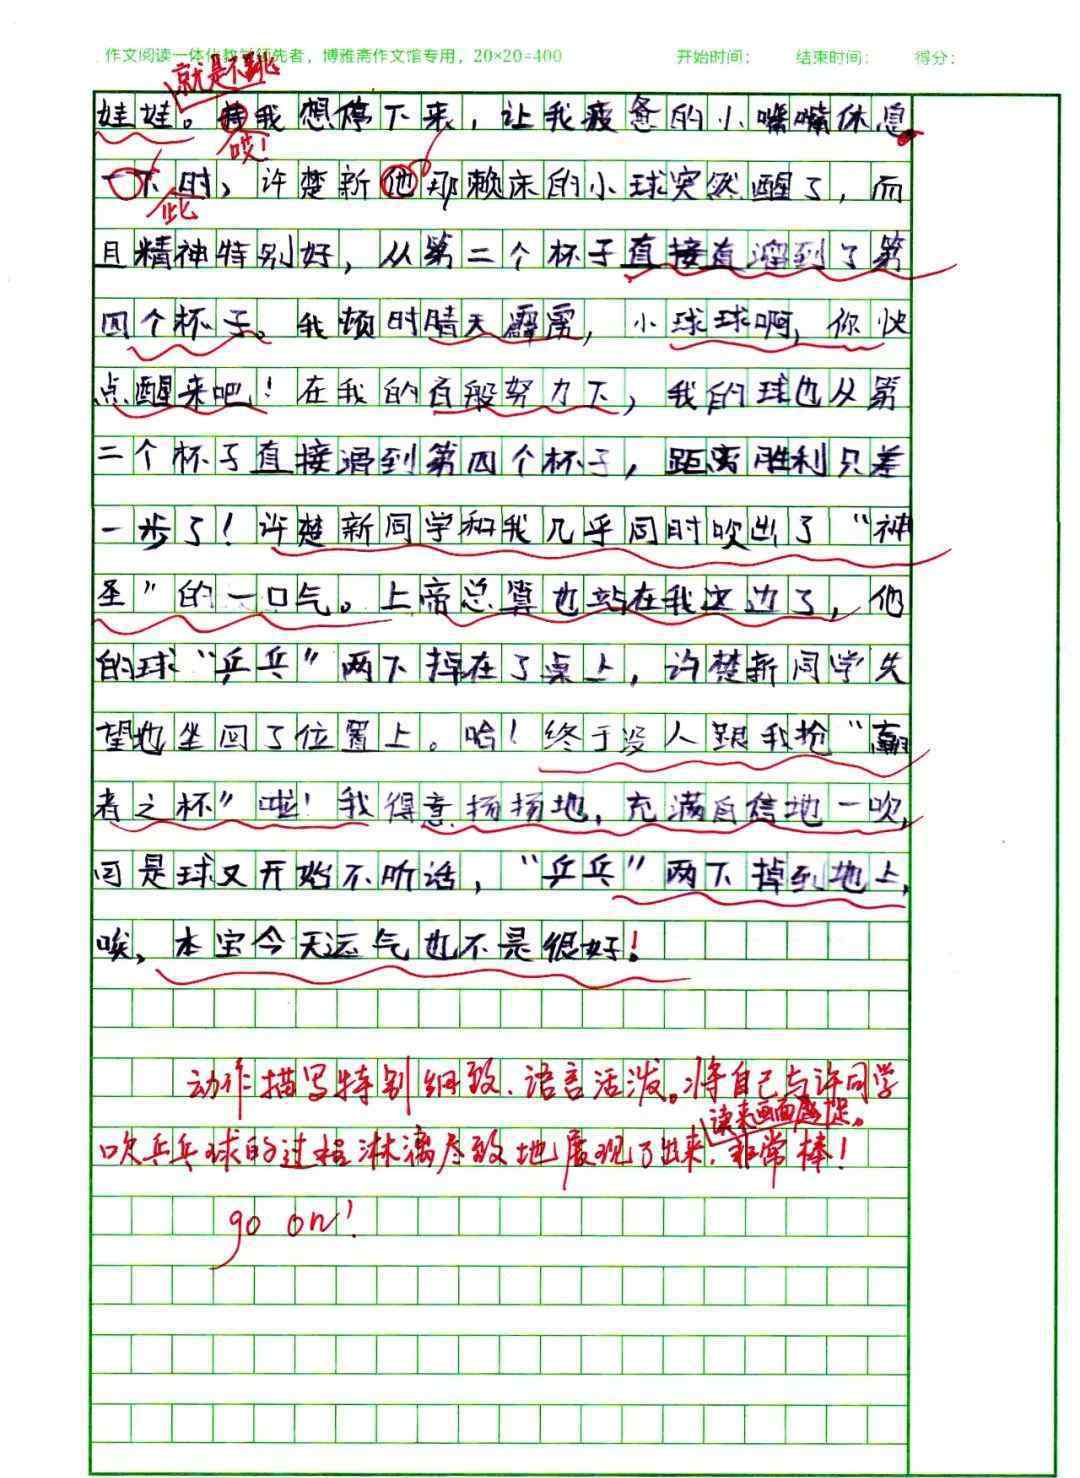 作文阅读一体化教学领先者，博雅斋作文馆专用，20×20=400 开始时间： 结束时间： 得分：
就是不跳
娃娃。我想停下来，让我疲惫的小嘴嘴休息
哎！
一下时，许楚新他那赖床的小球突然醒了，而
此
且精神特别好，从第二个杯子直接直溜到了第
四个杯子。我顿时晴天霹雳，小球球啊，你快
点醒来吧！在我的百般努力下，我的球也从第
二个杯子直接滑到第四个杯子，距离胜利只差
一步了！许楚新同学和我几乎同时吹出了“神
圣”的一口气。上帝总算也站在我这边了，他
的球“乒乓”两下掉在了桌上，许楚新同学失
望地坐回了位置上。哈！终于没人跟我抢“赢
者之杯”啦！我得意扬扬地，充满自信地一吹，
可是球又开始不听话，“乒乓”两下掉到地上，
唉，本宝今天运气也不是很好！
动作描写特别细致、语言活泼。将自己与许同学
读来画面感足。
吹乒乓球的过程淋漓尽致地展现了出来，非常棒！
go on！